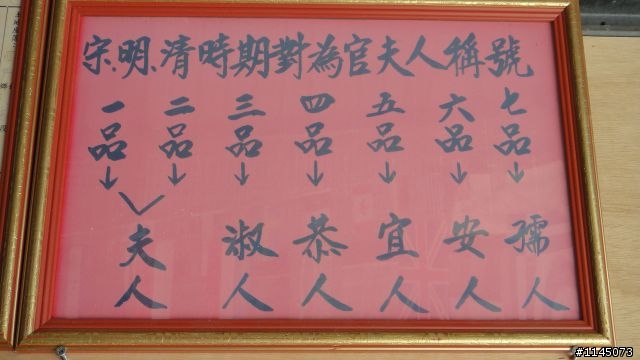 宋、明、清時期對為官夫人稱號
一品 二品 三品 四品 五品 六品 七品
↓ ↓ ↓ ↓ ↓ ↓ ↓
夫人 淑人 恭人 宜人 安人 孺人
#1145073